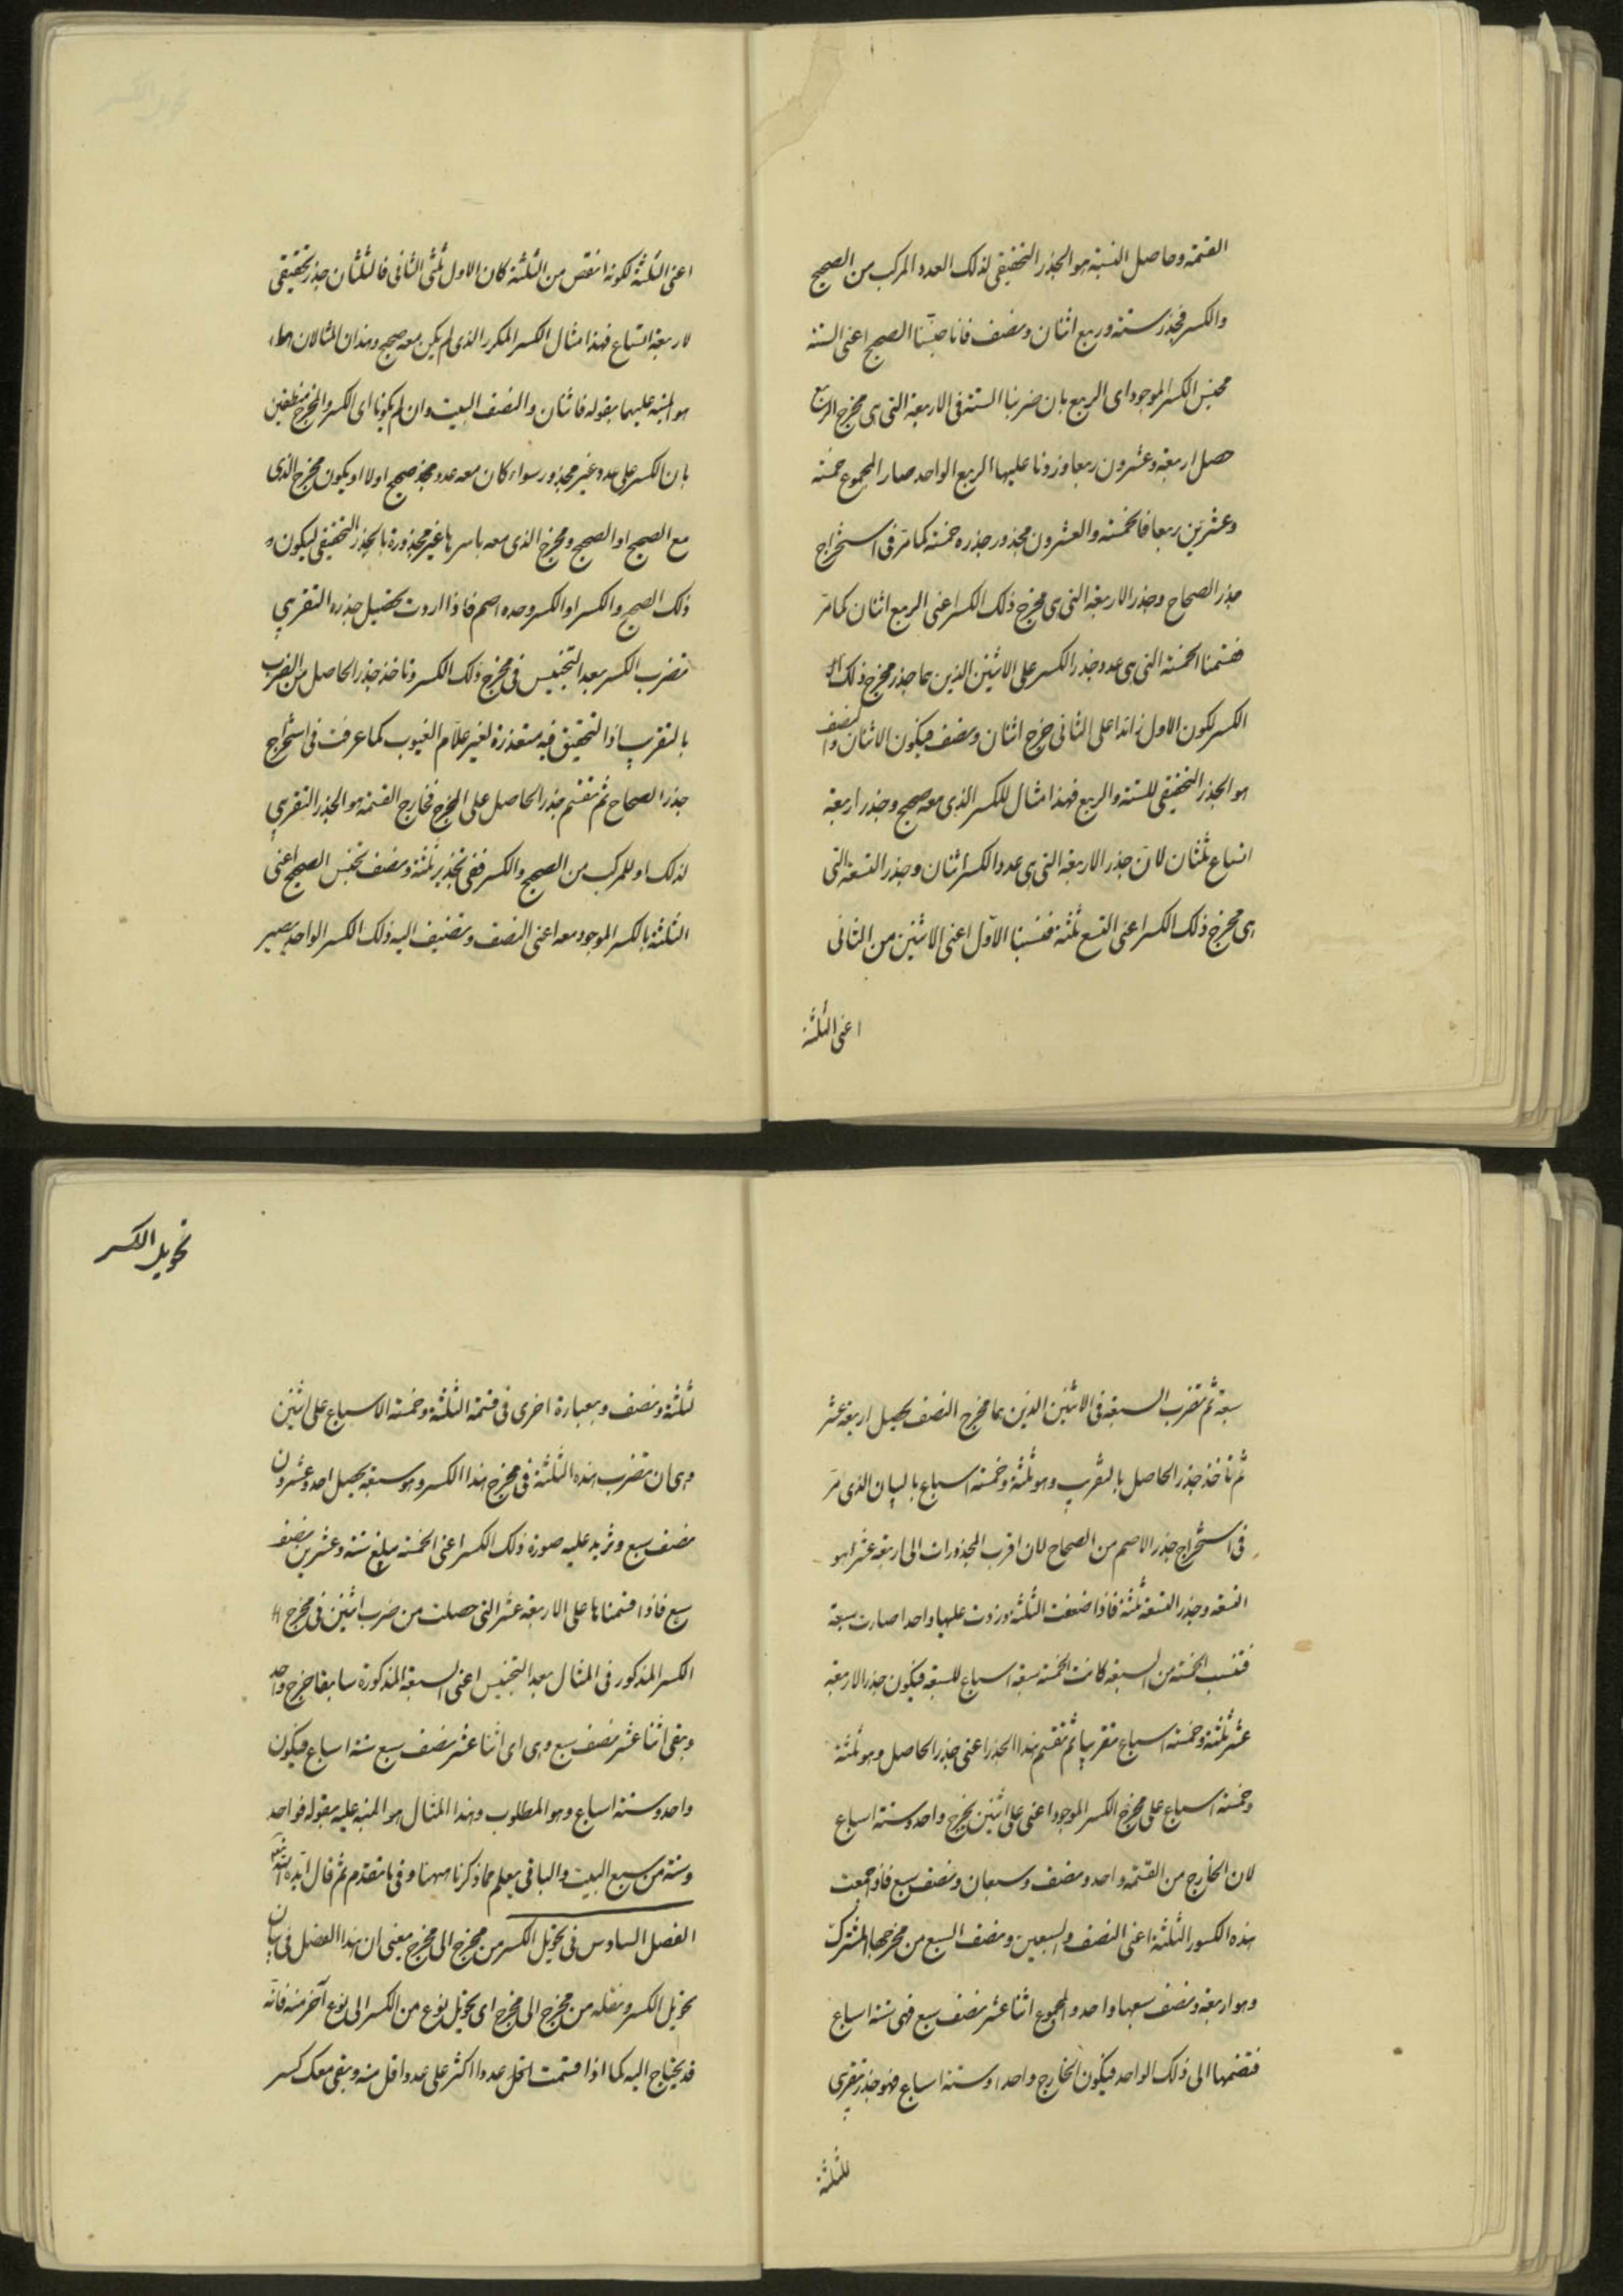 القسمة وحاصل النسبة هو الجذر التحقيقى لذلك العدد المركب من الصحيح
والكسر فجذر ستة وربع اثنان ونصف فانا جنّسنا الصحيح اعنى الستة
مجنس الكسر الموجود اى الربع بان ضربنا الستة فى الاربعة التى هى مخرج الربع
حصل اربعة وعشرون ربعا وزدنا عليها الربع الواحد صار المجموع خمسة
وعشرين ربعا فالخمسة والعشرون مجذور جذره خمسة كما مرّ فى استخراج
جذر الصحاح وجذر الاربعة التى هى مخرج ذلك الكسر اعنى الربع اثنان كما مرّ
فقسمنا الخمسة التى هى عدد جذر الكسر على الاثنين الذين هما جذر مخرج ذلك
الكسر لكون الاول زائدا على الثانى خرج اثنان ونصف فيكون الاثنان والنصف
هو الجذر التحقيقى للستة والربع فهذا مثال للكسر الذى معه صحيح وجذر اربعة
اتساع ثلثان لانّ جذر الاربعة التى هى عدد الكسر اثنان وجذر التسعة التى
هى مخرج ذلك الكسر اعنى التسع ثلثة فنسبنا الاوّل اعنى الاثنين من الثانى
اعنى الثلثة
اعنى الثلثة لكونه انقص من الثلثة كان الاول ثلثى الثانى فالثلثان جذر تحقيقى
لاربعة اتساع فهذا مثال الكسر المكرر الذى لم يكن معه صحيح وهذان المثالان
هو المنبه عليهما بقوله فاثنان والنصف البيت وان لم يكونا اى الكسر والمخرج منطقين
بان الكسر على عدد غير مجذور سواء كان معه عدد صحيح اولا او يكون مخرج الذى
مع الصحيح او الصحيح ومخرج الذى معه باسرها غير مجذورة بالجذر التحقيقى ليكون
ذلك الصحيح والكسر او الكسر وحده اصم فاذا اردت تحصيل جذره التقريبى
تضرب الكسر بعد التجنيس فى مخرج ذلك الكسر وتاخذ جذر الحاصل من الضرب
بالتقريب اذ التحقيق فيه متعذرة لغير علّام الغيوب كما عرفت فى استخراج
جذر الصحاح ثم تقسم جذر الحاصل على المخرج فخارج القسمة هو الجذر التقريبى
لذلك او للمركب من الصحيح والكسر ففى تجذير ثلثة ونصف تجنس الصحيح اعنى
الثلثة بالكسر الموجود معه اعنى النصف وتضيف اليه ذلك الكسر الواحد يصير
تحويل الكسر
سبعة ثم تضرب السبعة فى الاثنين الذين هما مخرج النصف يحصل اربعة عشر
ثم تاخذ جذر الحاصل بالتقريب وهو ثلثة وخمسة اسباع بالبيان الذى مرّ
فى استخراج جذر الاصم من الصحاح لان اقرب المجذورات الى اربعة عشر هو
التسعة وجذر التسعة ثلثة فاذا ضعفت الثلثة وزدت عليها واحدا صارت سبعة
فتنسب الخمسة من السبعة كانت الخمسة سبعة اسباع للسبعة فيكون جذر الاربعة
عشر ثلثة وخمسة اسباع تقريبا ثم تقسم هذا الجذر اعنى جذر الحاصل وهو ثلثة
وخمسة اسباع على مخرج الكسر الموجود اعنى على اثنين يخرج واحد وستة اسباع
لان الخارج من القسمة واحد ونصف وسبعان ونصف سبع فاذا جمعت
هذه الكسور الثلثة اعنى النصف والسبعين ونصف السبع من مخرجها المشترك
وهو اربعة ونصف سبعها واحد والمجموع اثنا عشر نصف سبع فهى ستة اسباع
فتضمها الى ذلك الواحد فيكون الخارج واحدا وستة اسباع فهو جذر تقريبى
للثلثة
لثلثة ونصف وبعبارة اخرى فى قسمة الثلثة وخمسة الاسباع على اثنين
وهى ان تضرب هذه الثلثة فى مخرج هذا الكسر وهو سبعة يحصل احد وعشرون
نصف سبع وتزيد عليه صورة ذلك الكسر اعنى الخمسة يبلغ ستة وعشرين نصف
سبع فاذا قسمناها على الاربعة عشر التى حصلت من ضرب اثنين فى مخرج
الكسر المذكور فى المثال بعد التجنيس اعنى السبعة المذكورة سابقا خرج واحد
وبقى اثنا عشر نصف سبع وهى اى اثنا عشر نصف سبع ستة اسباع فيكون
واحد وستة اسباع وهو المطلوب وهذا المثال هو المنبه عليه بقوله فواحد
وستة من سبع البيت والباقى يعلم مما ذكرنا ههنا وفى ما تقدم ثم قال ايّده الله
الفصل السادس فى تحويل الكسر من مخرج الى مخرج يعنى ان هذا الفصل فى بيان
تحويل الكسر ونقله من مخرج الى مخرج اى تحويل نوع من الكسر الى نوع آخر منه فانّه
قد يحتاج اليه كما اذا قسمت عددا اكثر على عدد اقل منه وبقى معك كسر